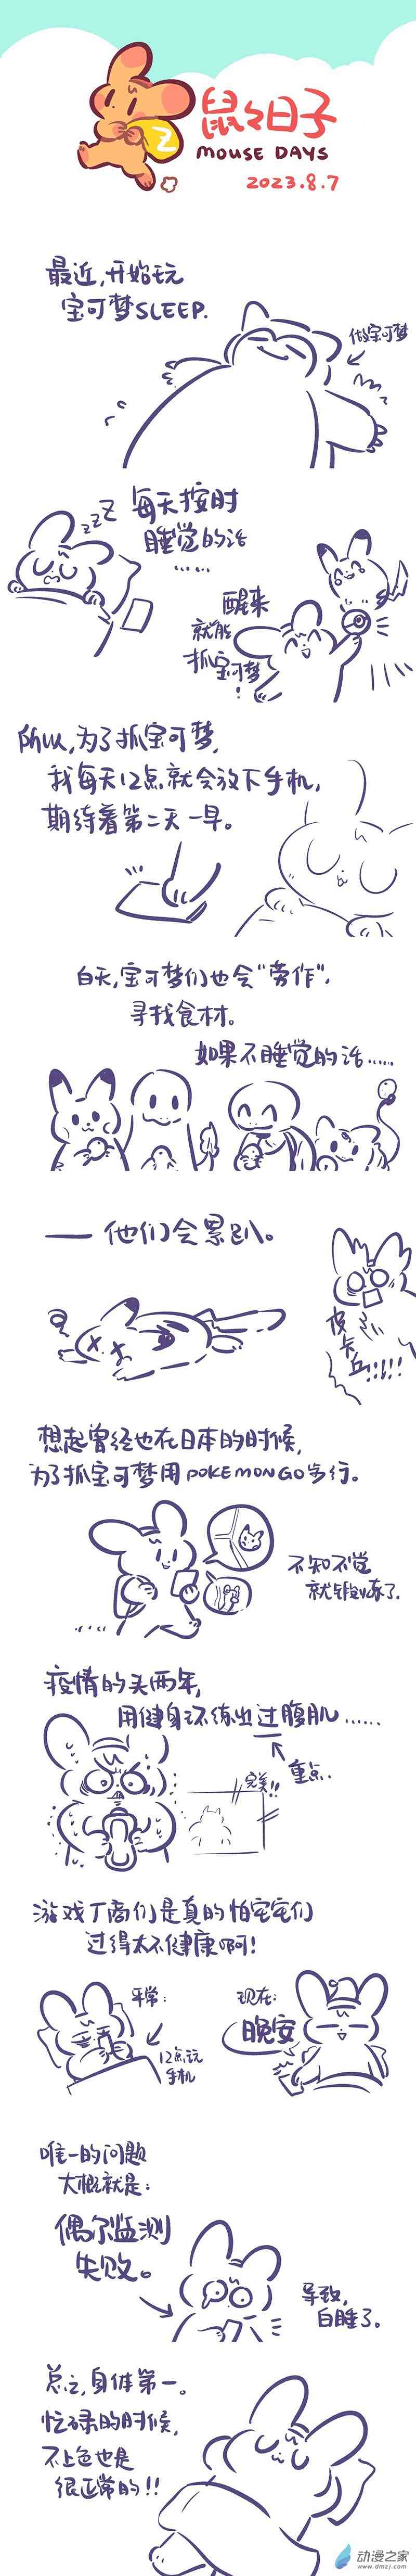 鼠々日子
MOUSE DAYS
2023.8.7
最近,开始玩
宝可梦SLEEP.
做宝可梦
zzZ
每天按时
睡觉的话
……
醒来
就能
抓宝可梦
!
所以,为了抓宝可梦,
我每天12点就会放下手机,
期待着第二天一早。
白天,宝可梦们也会"劳作",
寻找食材。
如果不睡觉的话……
—— 他们会累趴。
皮卡丘!!!!!
想起曾经也在日本的时候,
为了抓宝可梦用POKEMON GO步行。
不知不觉
就锻炼了.
疫情的头两年,
用健身环练出过腹肌……
重点.
完美!!
游戏厂商们是真的怕宅宅们
过得太不健康啊!
平常:
12点玩
手机
现在:
晚安
唯一的问题
大概就是:
偶尔监测
失败。
导致,
白睡了。
总之,身体第一。
忙碌的时候,
不上色也是
很正常的!!
动漫之家
www.dmzj.com